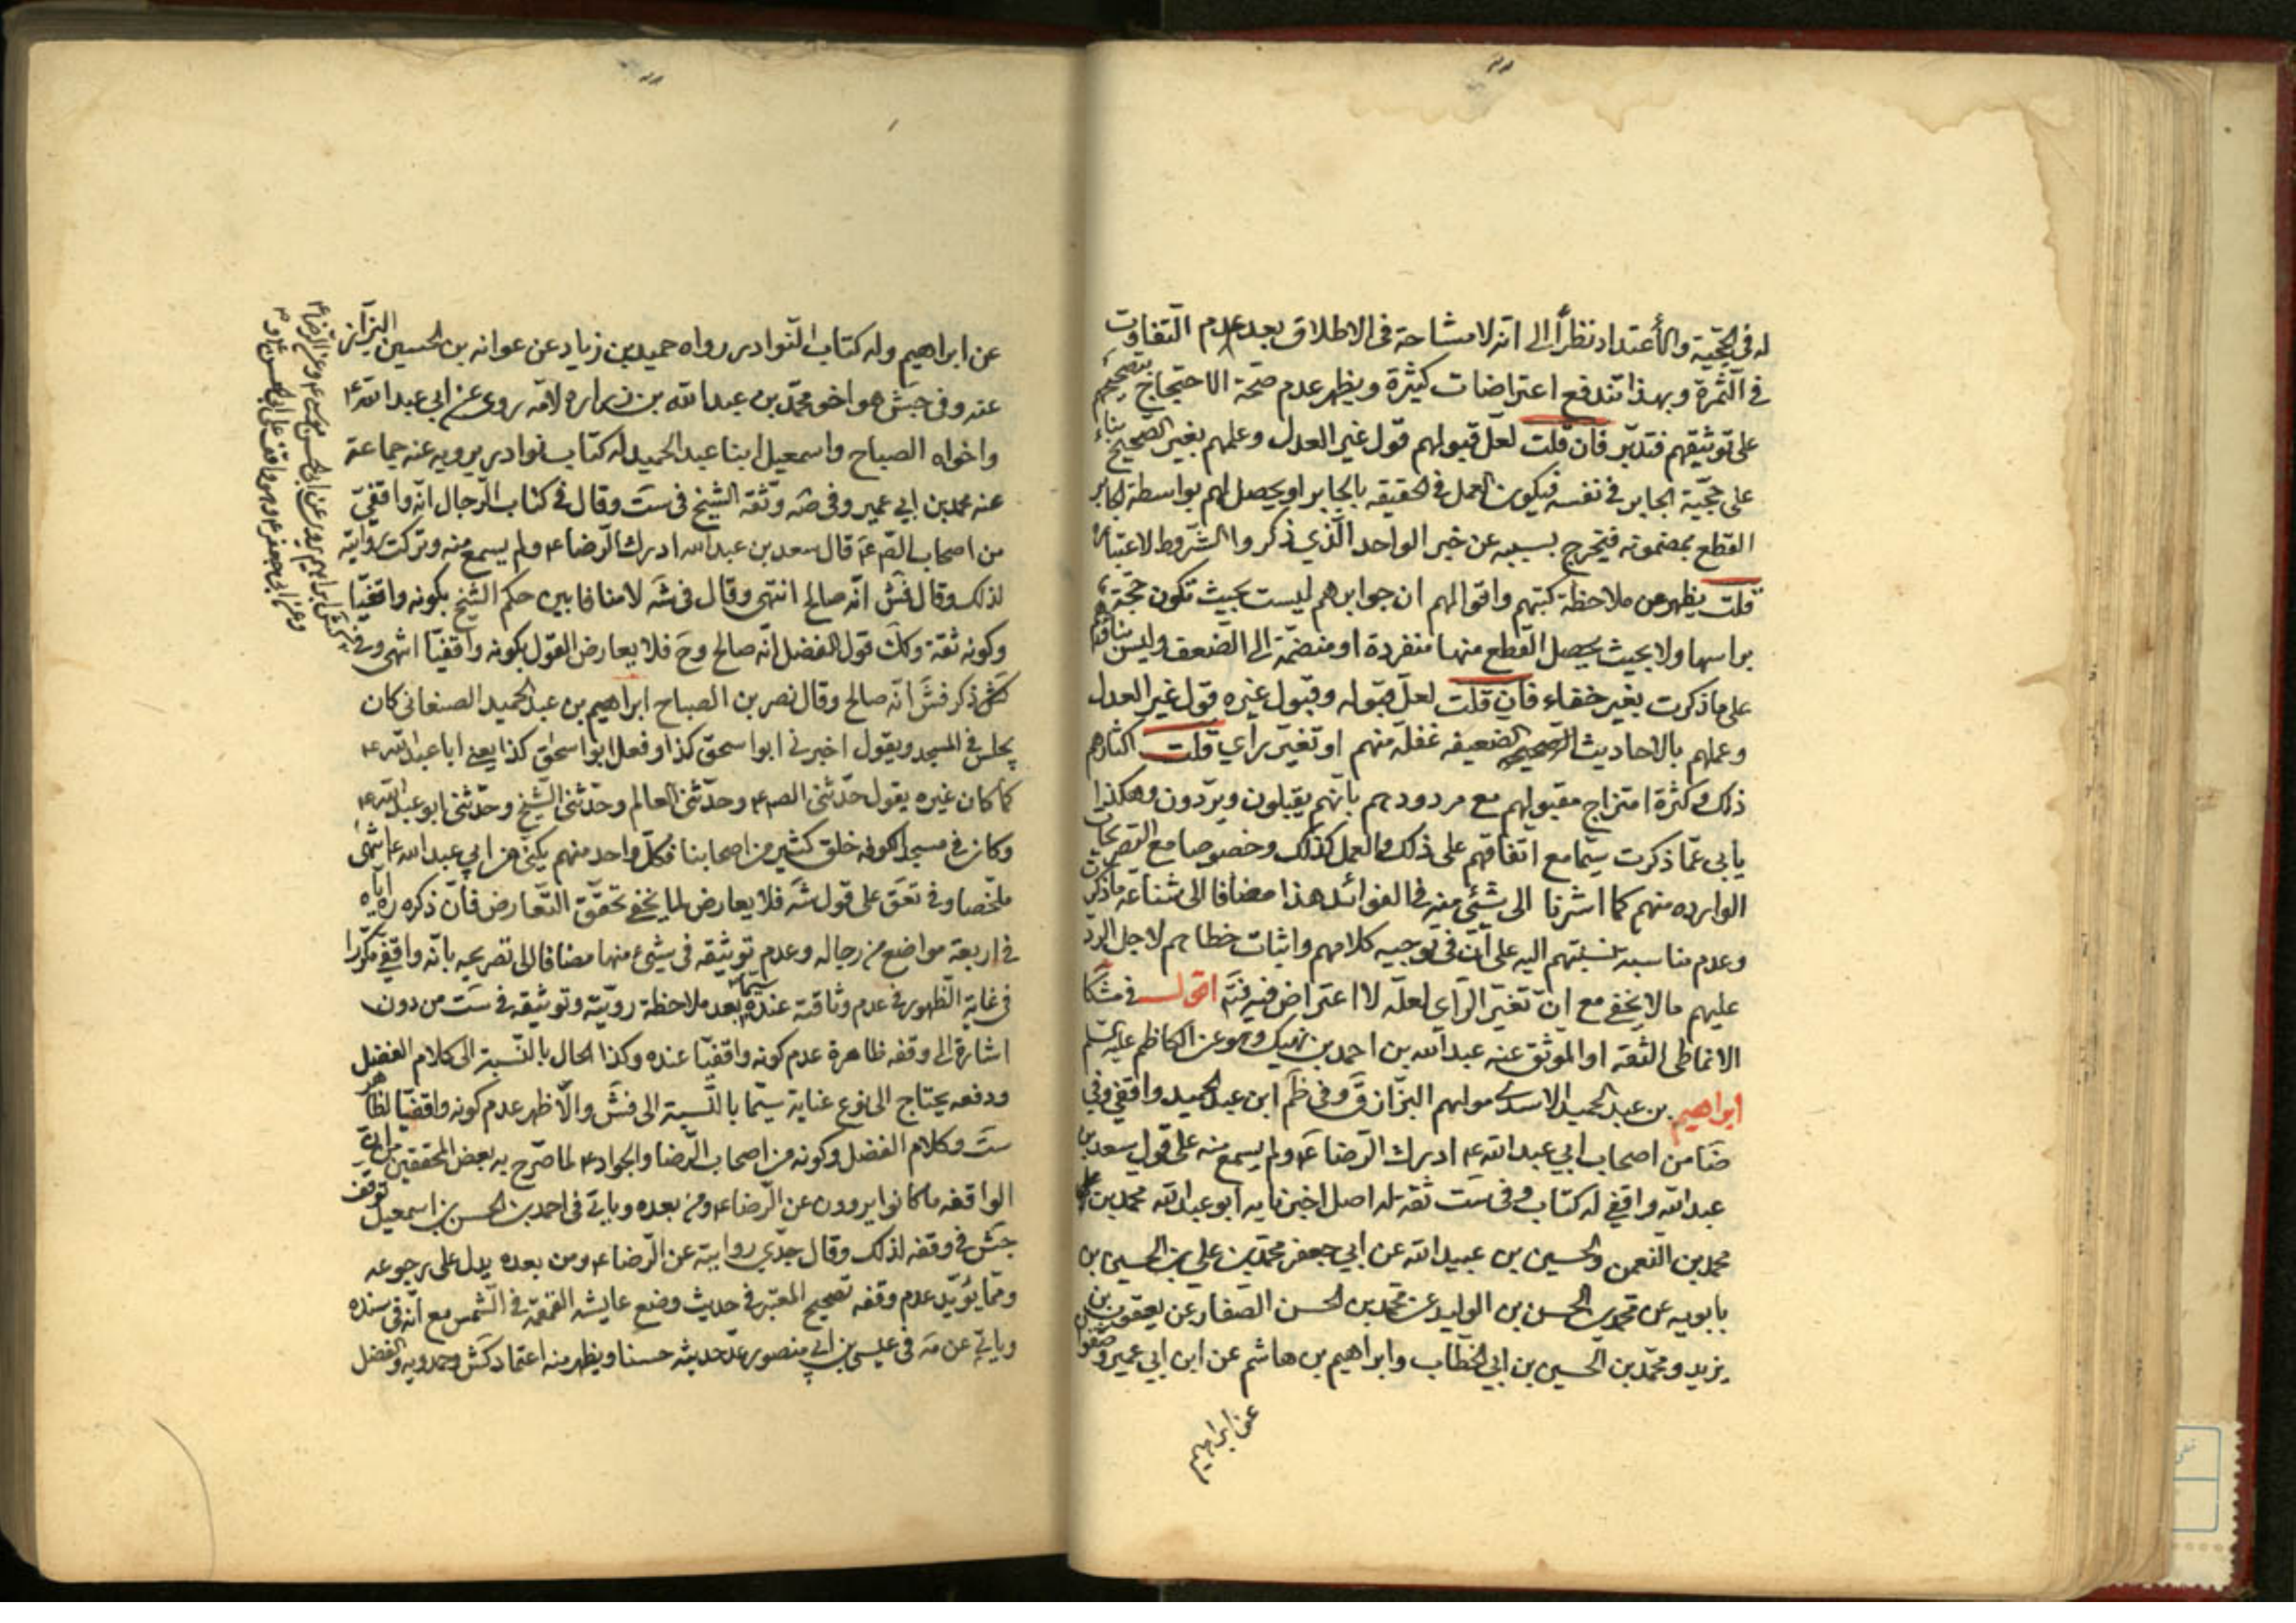 له في الحجية والاعتداد نظراً إلى انه لا مشاحة في الاطلاق بعد عدم التفاوت
في الثمرة وبهذا تندفع اعتراضات كثيرة ويظهر عدم صحة الاحتجاج بتصحيحهم
على توثيقهم فتدبّر فان قلت لعل قبولهم قول غير العدل وعملهم بغير الصحيح بناء
على حجّية الجابر في نفسه فيكون العمل في الحقيقه بالجابر او يحصل لهم بواسطة الجابر
القطع بمضمونه فيخرج بسببه عن خبر الواحد الّذي ذكروا الشروط لاعتباره
قلت يظهر من ملاحظة كتبهم واقوالهم ان جوابرهم ليست بحيث تكون حجّة
براسها ولا بحيث يحصل القطع منها منفردة او منضمّة إلى الضعف وليس بناؤهم
على ما ذكرت بغير خفاء فان قلت لعلّ قبوله وقبول غيره قول غير العدل
وعملهم بالاحاديث الضعيفه غفلة منهم او تغيّر رأي قلت اكثارهم
ذلك وكثرة امتزاج مقبولهم مع مردودهم بانهم يقبلون ويردّون وهكذا
يأبى عمّا ذكرت سيّما مع اتفاقهم على ذلك والعمل كذلك وخصوصا مع التصريحات
الوارده منهم كما اشرنا الى شيء منه في الفوائد هذا مضافا الى شناعة ما ذكرت
وعدم مناسبة نسبتهم اليه على أنّ في توجيه كلامهم واثبات خطاهم لاجل الردّ
عليهم ما لا يخفى مع انّ تغيّر الرأي لعلّه لا اعتراض فيه فتم اقول في مشكا
الانماطى الثقة او الموثق عنه عبدالله بن احمد بن نهيك وهو عن الكاظم عليه السلم
ابراهيم بن عبد الحميد الاسدي مولاهم البزّاز ق وفي ظم ابن عبد الحميد واقفي وفي
ضا من اصحاب ابي عبد الله ع ادرك الرّضا ع ولم يسمع منه على قول سعد بن
عبدالله واقفي له كتاب وفي ست ثقة له اصل اخبرنا به ابو عبدالله محمد بن
محمد بن النعمن والحسين بن عبيدالله عن ابي جعفر محمّد بن علي بن الحسين بن
بابويه عن محمد بن الحسن بن الوليد عن محمد بن الحسن الصّفار عن يعقوب بن
يزيد ومحمّد بن الحسين بن ابي الخطاب وابراهيم بن هاشم عن ابن ابي عمير وصفوان
عن ابراهيم
عن ابراهيم وله كتاب النوادر رواه حميد بن زياد عن عوانه بن الحسين البزّاز
عنه وفي جش هو اخو محمّد بن عبدالله بن زراره لامّه روى عن ابي عبدالله ع
واخواه الصباح واسمعيل ابنا عبد الحميد له كتاب نوادر يرويه عنه جماعة
عنه محمد بن ابي عمير وفي صه وثّقه الشيخ في ست وقال في كتاب الرجال انّه واقفيّ
من اصحاب الصّ ع قال سعد بن عبدالله ادرك الرّضا ع ولم يسمع منه وتركت روايته
لذلك وقال فش انّه صالح انتهى وقال في شه لا منافا بين حكم الشيخ بكونه واقفيّا
وكونه ثقة وكك قول الفضل انّه صالح وح فلا يعارض القول بكونه واقفيّا انتهى وفي
كش ذكر فش انّه صالح وقال نصر بن الصباح ابراهيم بن عبد الحميد الصنعاني كان
يجلس في المسجد ويقول اخبرني ابو اسحق كذا وفعل ابو اسحق كذا يعني ابا عبدالله ع
كما كان غيره يقول حدّثني الص ع وحدّثني العالم وحدّثني الشيخ وحدّثني ابو عبدالله ع
وكان في مسجد الكوفه خلق كثير من اصحابنا فكلّ واحد منهم يكنّي عن ابي عبدالله ع انتهى
ملخّصا وفي تعق على قول شه فلا يعارض لما يخفى تحقّق التّعارض فانّ ذكره ره ايّاه
في اربعة مواضع من رجاله وعدم توثيقه في شيء منها مضافا الى تصريحه بانّه واقفي مكرّرا
في غاية الظهور في عدم وثاقته عنده سيّما بعد ملاحظة رويّته وتوثيقه في ست من دون
اشارة إلى وقفه ظاهرة عدم كونه واقفيّا عنده وكذا الحال بالنّسبة الى كلام الفضل
ودفعه يحتاج الى نوع عناية سيّما بالنّسبة الى فش والّاظهر عدم كونه واقفيّا لظاهر
ست وكلام الفضل وكونه من اصحاب الرّضا والجواد ع لما صرّح به بعض المحققين من ان
الواقفه ما كانوا يروون عن الرّضا ع ومن بعده وياتي في احمد بن الحسن بن اسمعيل توقف
جش في وقفه لذلك وقال جدّي روايته عن الرّضا ع ومن بعده يدل على رجوعه
وممّا يؤيّد عدم وقفه تصحيح المعتبر في حديث وضع عايشه القمقمة في الشمس مع انّه في سنده
وياتي عن مه في عيسى بن ابي منصور عدّ حديثه حسنا ويظهر منه اعتماد كش وحمدويه والفضل